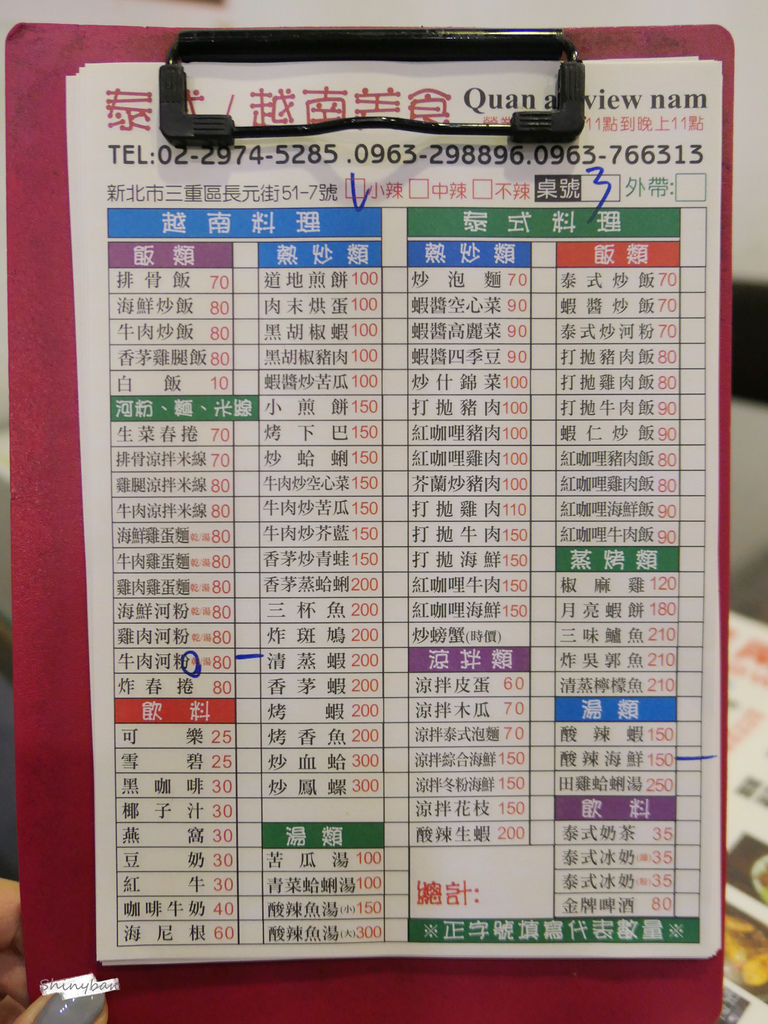 泰式/越南美食 Quan a view nam
11點到晚上11點
TEL:02-2974-5285 .0963-298896.0963-766313
新北市三重區長元街51-7號 小辣 中辣 不辣 桌號 3 外帶:
越南料理
飯類
排骨飯 70
海鮮炒飯 80
牛肉炒飯 80
香茅雞腿飯 80
白飯 10
河粉、麵、米線
生菜春捲 70
排骨涼拌米線 70
雞腿涼拌米線 80
牛肉涼拌米線 80
海鮮雞蛋麵 乾/湯 80
牛肉雞蛋麵 乾/湯 80
雞肉雞蛋麵 乾/湯 80
海鮮河粉 乾/湯 80
雞肉河粉 乾/湯 80
牛肉河粉 湯 80
炸春捲 80
飲料
可樂 25
雪碧 25
黑咖啡 30
椰子汁 30
燕窩 30
豆奶 30
紅牛 30
咖啡牛奶 40
海尼根 60
熱炒類
道地煎餅 100
肉末烘蛋 100
黑胡椒蝦 100
黑胡椒豬肉 100
蝦醬炒苦瓜 100
小煎餅 150
烤下巴 150
炒蛤蜊 150
牛肉炒空心菜 150
牛肉炒苦瓜 150
牛肉炒芥藍 150
香茅炒青蛙 150
香茅蒸蛤蜊 200
三杯魚 200
炸斑鳩 200
清蒸蝦 200
香茅蝦 200
烤蝦 200
烤香魚 200
炒血蛤 300
炒鳳螺 300
湯類
苦瓜湯 100
青菜蛤蜊湯 100
酸辣魚湯(小) 150
酸辣魚湯(大) 300
泰式料理
熱炒類
炒泡麵 70
蝦醬空心菜 90
蝦醬高麗菜 90
蝦醬四季豆 90
炒什錦菜 100
打拋豬肉 100
紅咖哩豬肉 100
紅咖哩雞肉 100
芥蘭炒豬肉 100
打拋雞肉 110
打拋牛肉 150
打拋海鮮 150
紅咖哩牛肉 150
紅咖哩海鮮 150
炒螃蟹(時價)
涼拌類
涼拌皮蛋 60
涼拌木瓜 70
涼拌泰式泡麵 70
涼拌綜合海鮮 150
涼拌冬粉海鮮 150
涼拌花枝 150
酸辣生蝦 200
總計:
飯類
泰式炒飯 70
蝦醬炒飯 70
泰式炒河粉 70
打拋豬肉飯 80
打拋雞肉飯 80
打拋牛肉飯 90
蝦仁炒飯 90
紅咖哩豬肉飯 80
紅咖哩雞肉飯 80
紅咖哩海鮮飯 90
紅咖哩牛肉飯 90
蒸烤類
椒麻雞 120
月亮蝦餅 180
三味鱸魚 210
炸吳郭魚 210
清蒸檸檬魚 210
湯類
酸辣蝦 150
酸辣海鮮 150
田雞蛤蜊湯 250
飲料
泰式奶茶 35
泰式冰奶 35
泰式冰奶 35
金牌啤酒 80
※正字號填寫代表數量※
Shinyban